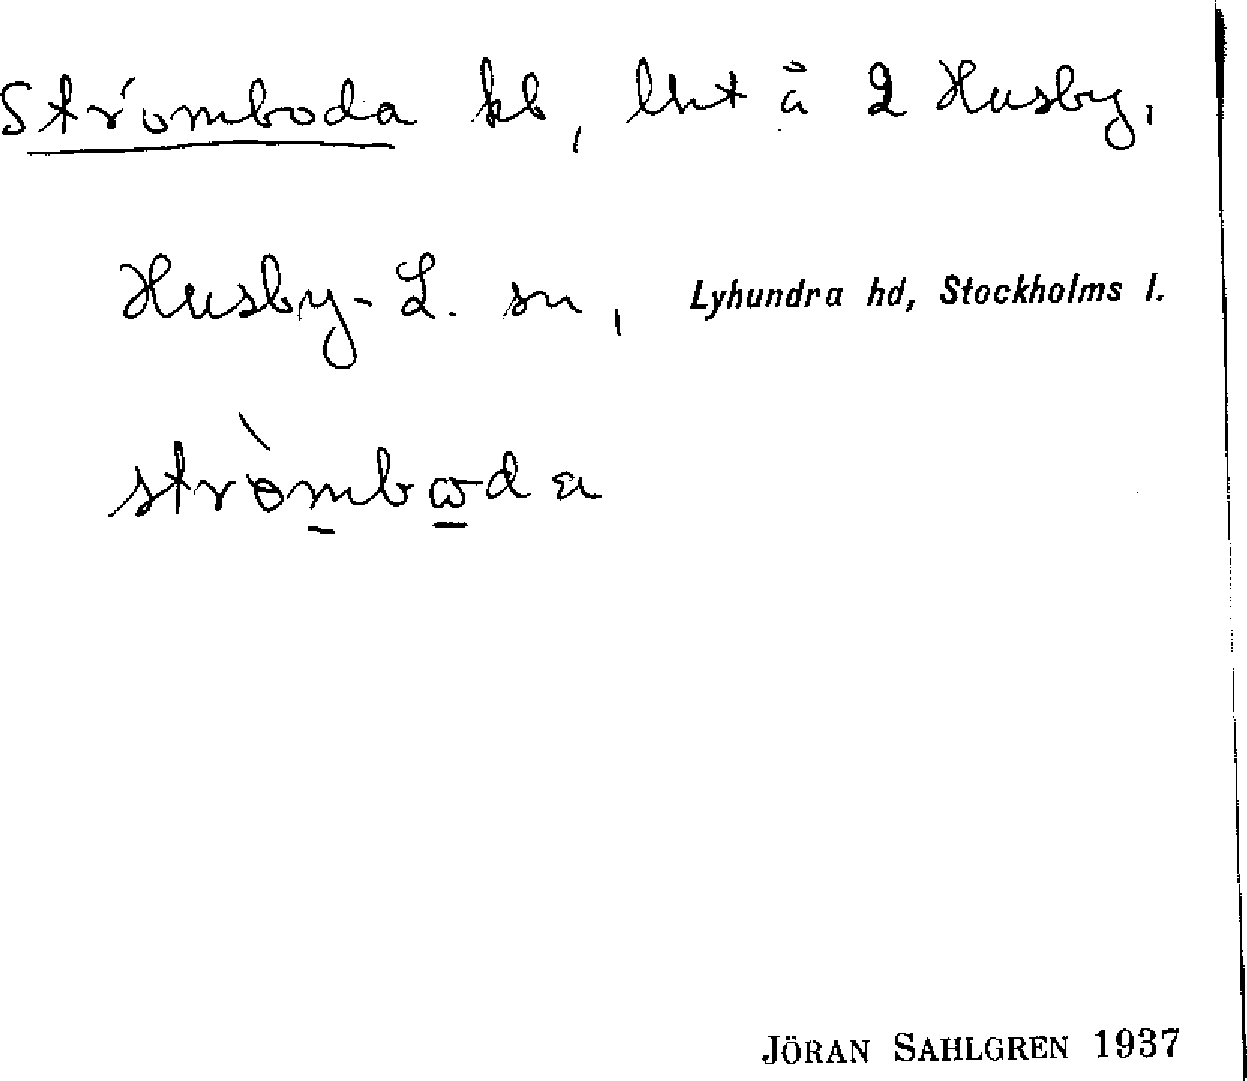 Strömboda kb, lht å 2 Husby,
Husby-L. sn, Lyhundra hd, Stockholms l.
stròmbωda
JÖRAN SAHLGREN 1937